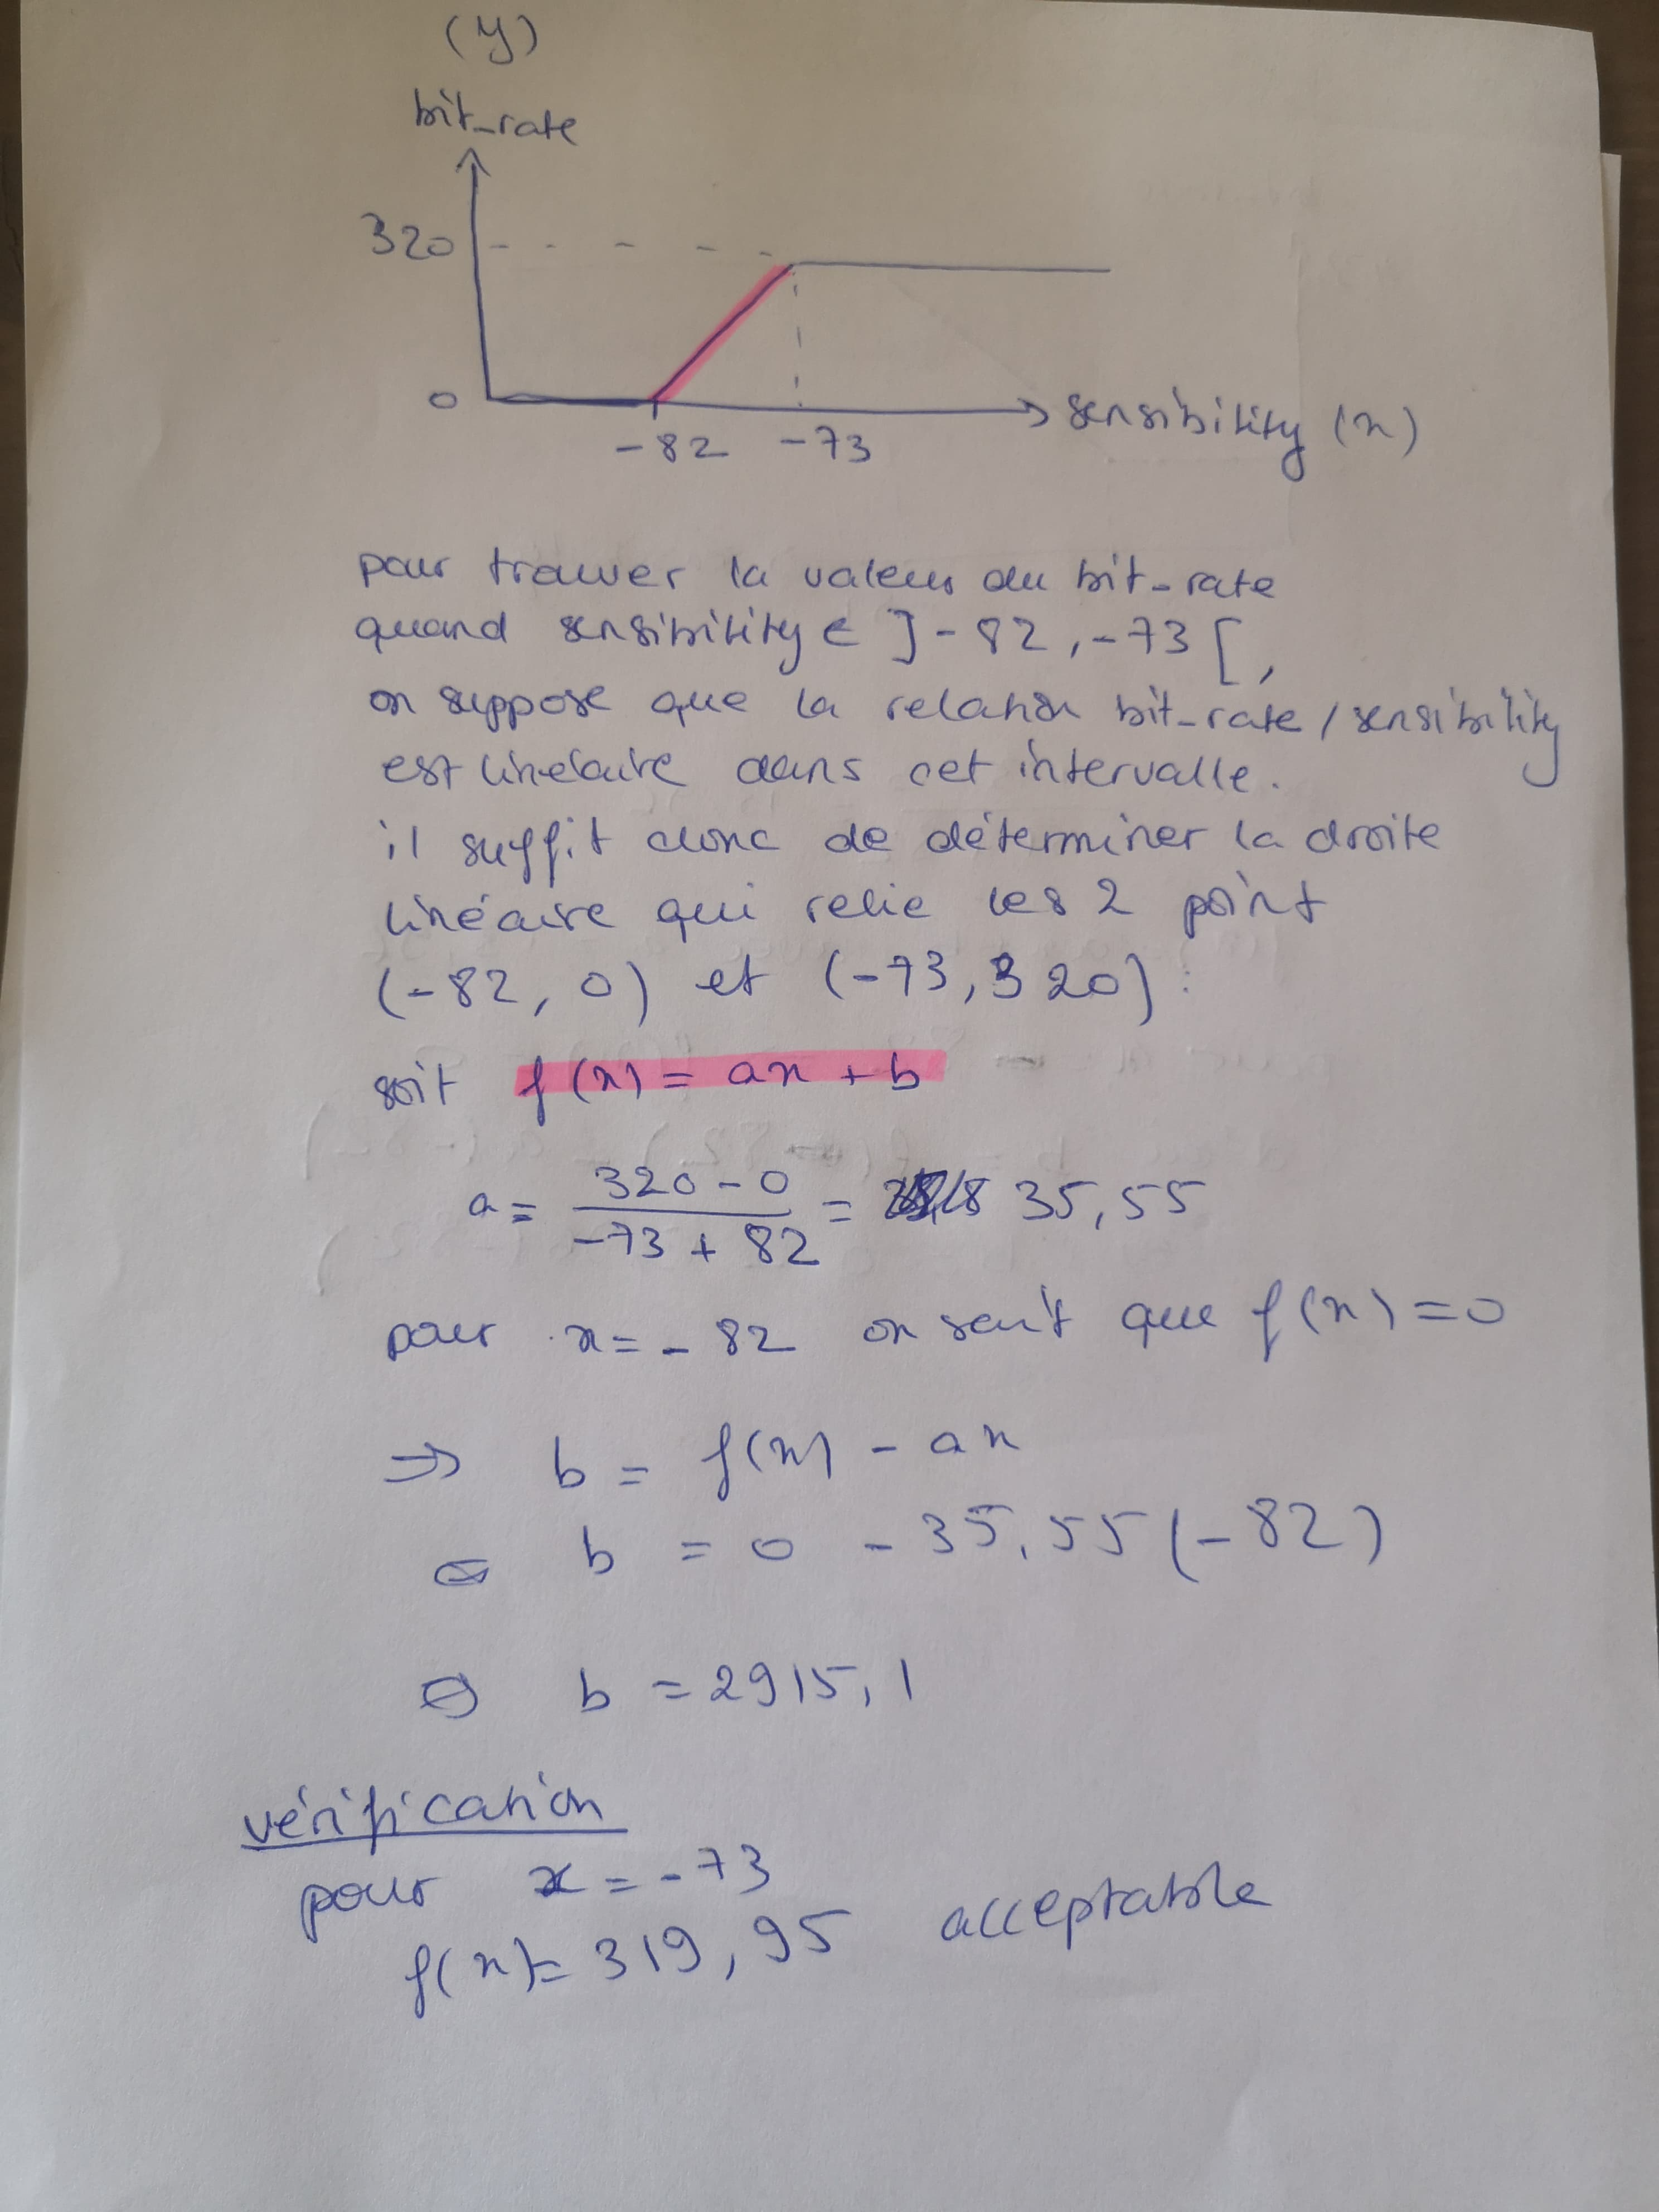 (y)
bit_rate
320
0
-82 -73
sensibility (x)
pour trouver la valeur du bit_rate
quand sensibility ∈ ]-82, -73[,
on suppose que la relation bit_rate / sensibility
est linéaire dans cet intervalle.
il suffit donc de déterminer la droite
linéaire qui relie les 2 point
(-82, 0) et (-73, 320) :
soit f(x) = ax + b
a = (320 - 0) / (-73 + 82) = 35,55
pour x = -82 on sait que f(x) = 0
⇒ b = f(x) - ax
⇔ b = 0 - 35,55(-82)
⇔ b = 2915,1
vérification
pour x = -73
f(x) = 319,95 acceptable